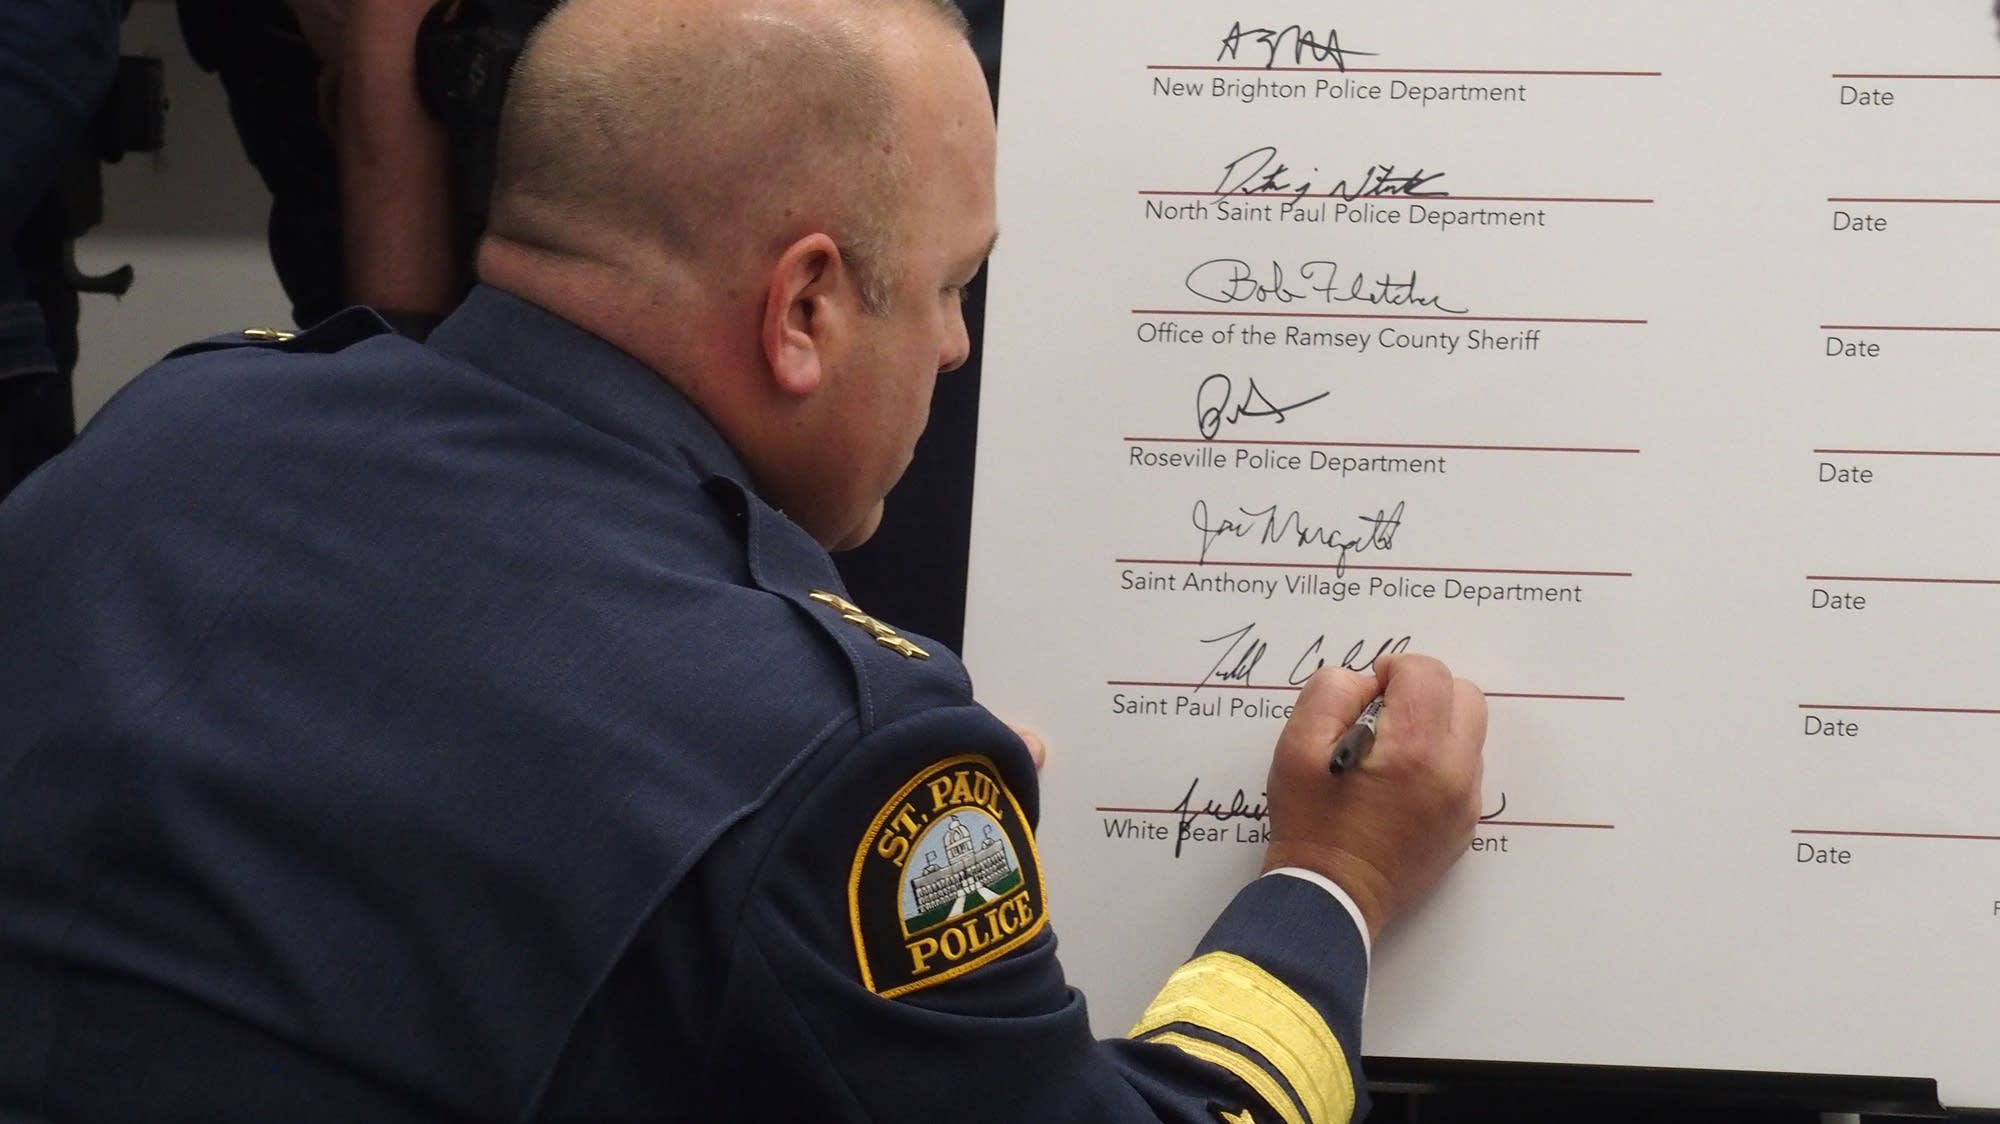 New Brighton Police Department
Date
North Saint Paul Police Department
Date
Bob Fletcher
Office of the Ramsey County Sheriff
Date
Roseville Police Department
Date
Saint Anthony Village Police Department
Date
Todd
Saint Paul Police
Date
White Bear
Date
ST. PAUL
POLICE